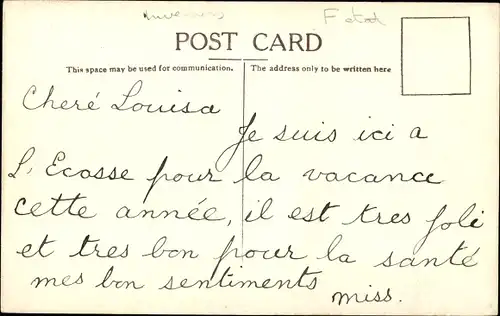 POST CARD
This space may be used for communication.
The address only to be written here
Cheré Louisa
Je suis ici a
L'Ecosse pour la vacance
cette année, il est tres joli
et tres bon pour la santé
mes bon sentiments
miss.